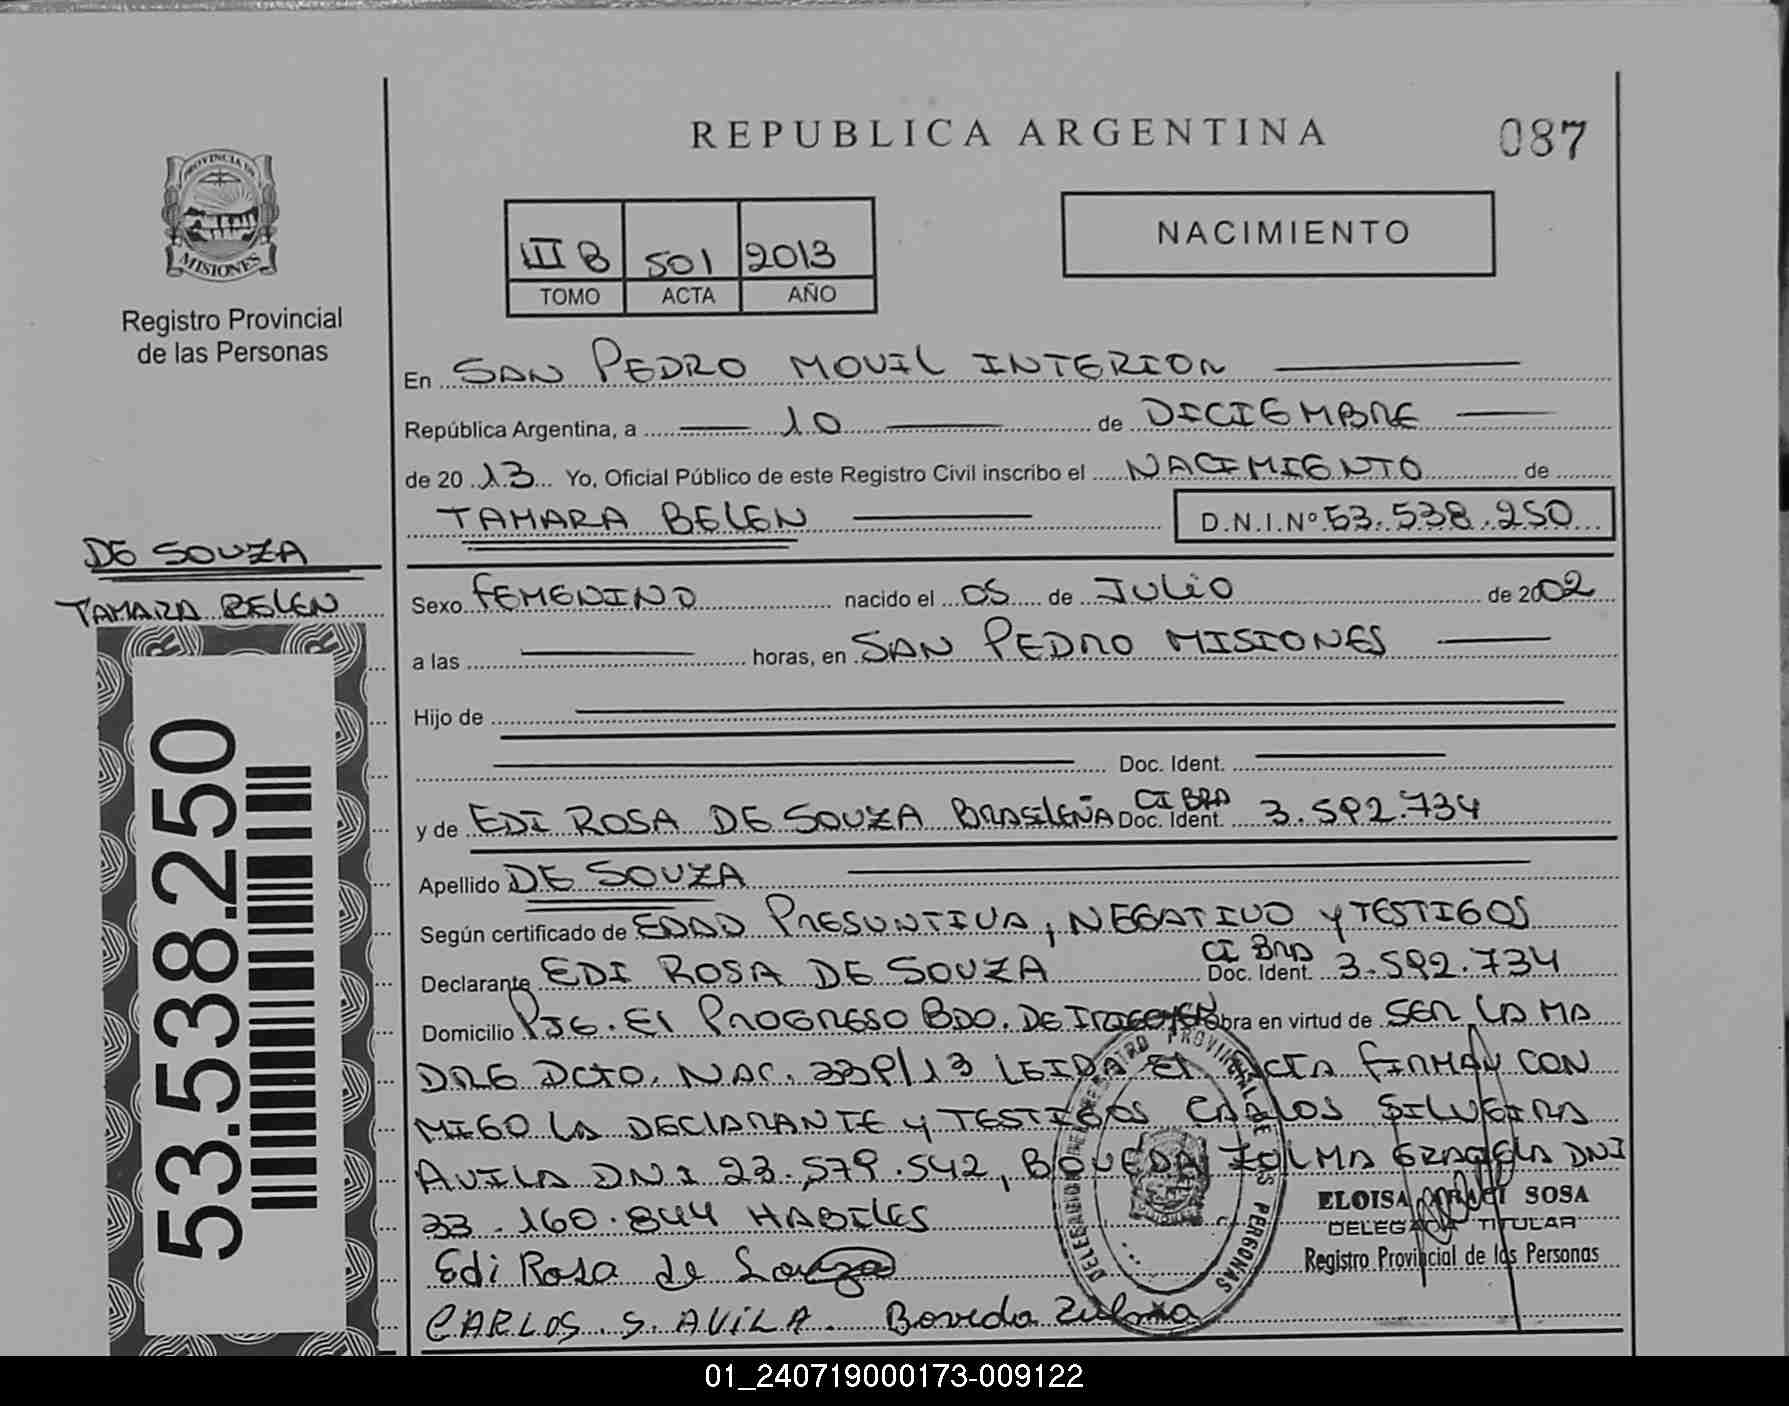 REPUBLICA ARGENTINA
087
PROVINCIA DE
MISIONES
Registro Provincial
de las Personas
III B 501 2013
TOMO ACTA AÑO
NACIMIENTO
En SAN PEDRO MOVIL INTERIOR
República Argentina, a 10 de DICIEMBRE
de 2013 Yo, Oficial Público de este Registro Civil inscribo el NACIMIENTO de
TAMARA BELEN D.N.I.Nº 53.538.250
DE SOUZA
TAMARA BELEN
Sexo FEMENINO nacido el 05 de JULIO de 2002
a las horas, en SAN PEDRO MISIONES
Hijo de
Doc. Ident.
y de EDI ROSA DE SOUZA BRASILEÑA CI BRA Doc. Ident. 3.592.734
Apellido DE SOUZA
Según certificado de EDAD PRESUNTIVA, NEGATIVO Y TESTIGOS
Declarante EDI ROSA DE SOUZA CI BRA Doc. Ident. 3.592.734
Domicilio PJE. El PROGRESO BDO. DE IRIGOYEN Obra en virtud de SER LA MA
DRE DCTO. NAC. 339/13 LEIDA El ACTA FIRMAN CON
MIGO LA DECLARANTE Y TESTIGOS CARLOS SILVEIRA
AVILA DNI 23.579.542, BOVEDA ZULMA GRACIELA DNI
33.160.844 HABILES
Edi Rosa de Souza
CARLOS S. AVILA. Boveda Zulma
DELEGACION REGISTRO PROVINCIAL DE LAS PERSONAS
ELOISA SOSA
DELEGADA TITULAR
Registro Provincial de las Personas
53.538.250
01_240719000173-009122